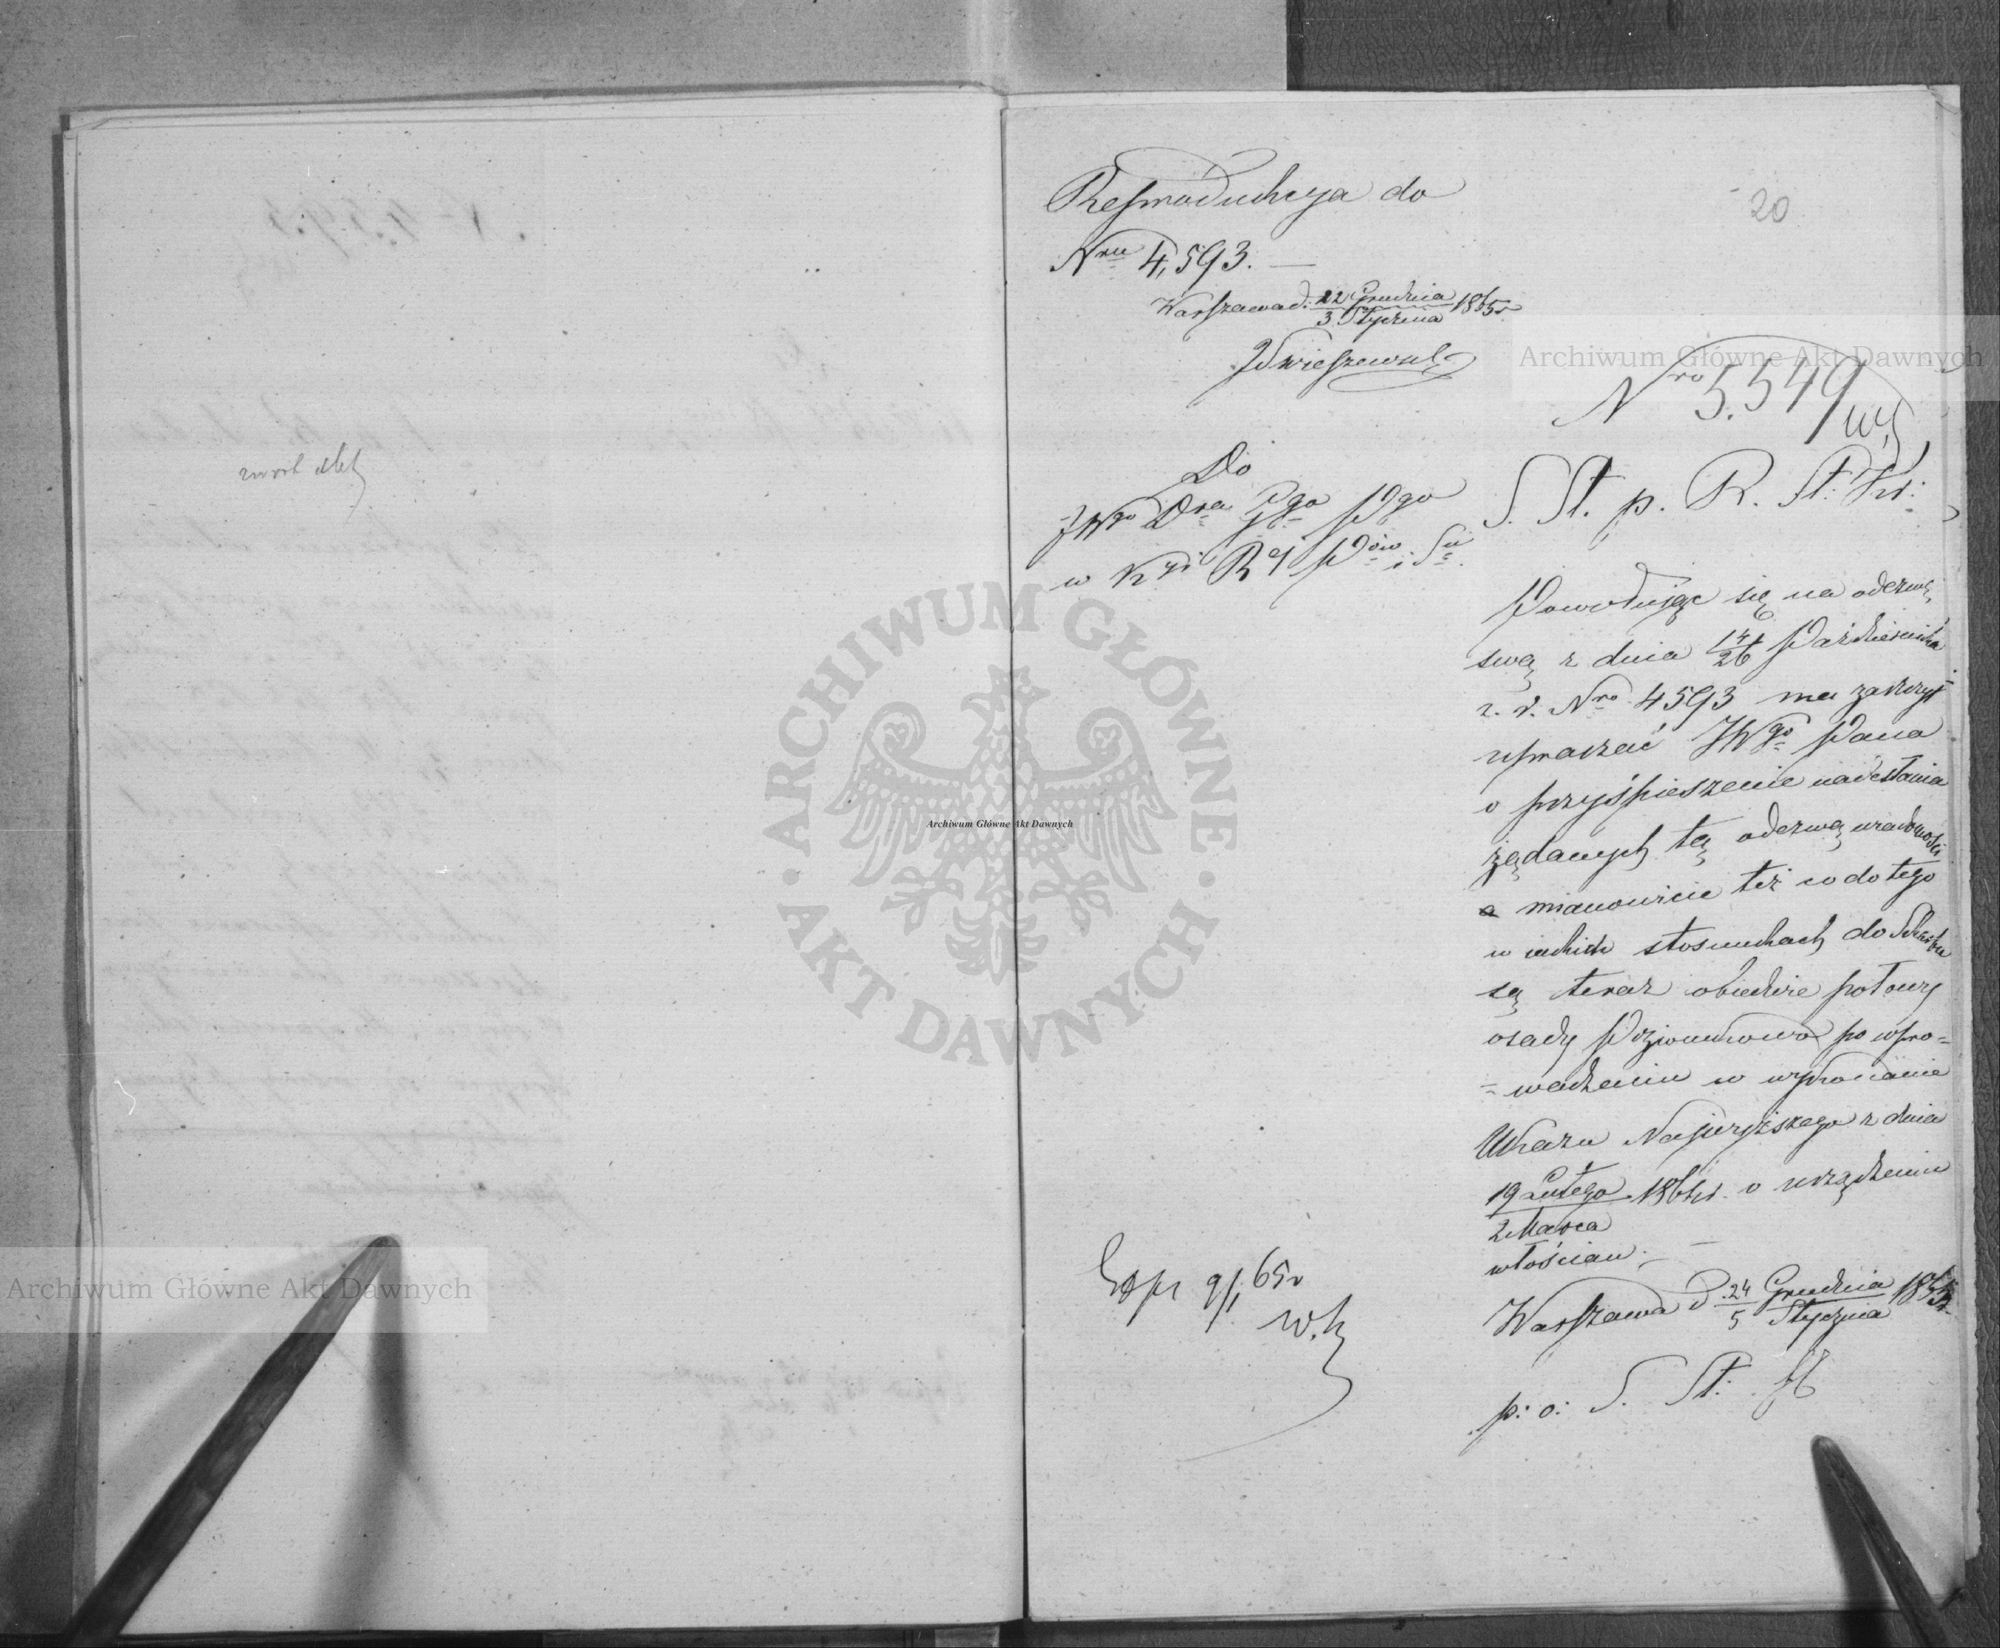 zwrot akt
Reprodukcya do
Nru 4,593. —
Warszawa d. 22 Grudnia / 3 Stycznia 1865 r
20
Nro 5.549
Do
JWgo Dra Ggo Pgo
w Kyi Rej Pów i Su.
S. St. p. R. St. Kr:
Powołując się na odezwę
swą z dnia 14/26 Października
z. r. Nro 4593 ma zaszczyt
upraszać JWgo Pana
o przyśpieszenie nadesłania
żądanych tą odezwą wiadomości
a mianowicie też co do tego
w jakich stosunkach do Skarbu
są teraz obiedwie połowy
osady po wpro=
=wadzeniu w wykonanie
Ukazu Najwyższego z dnia
19 Lutego / 2 Marca 1864 r. o urządzeniu
włościan. —
Warszawa d 24 Grudnia / 5 Stycznia 1864/5 r
p: o: S. St:
Exp 9/1 65 r
Archiwum Główne Akt Dawnych
Archiwum Główne Akt Dawnych
Archiwum Główne Akt Dawnych
ARCHIWUM GŁÓWNE
· AKT DAWNYCH ·